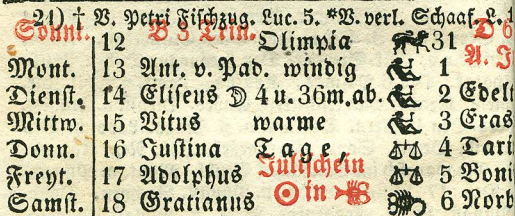 24) † V. Petri Fischzug. Luc. 5. *V. verl. Schaaf. L.
Sonnt. 12 B 3 Trin. Olimpia 31 D 6
A. J
Mont. 13 Ant. v. Pad. windig 1
Dienst. 14 Eliseus ☽ 4 u. 36m. ab. 2 Edelt
Mittw. 15 Vitus warme 3 Eras
Donn. 16 Justina Tage, 4 Tari
Freyt. 17 Adolphus Julischein 5 Boni
Samst. 18 Gratianus ☉ in ♋ 6 Norb